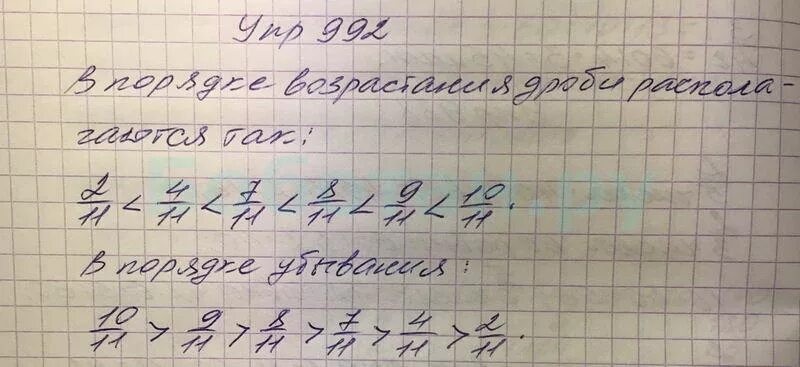 Упр 992
В порядке возрастания дроби распола-
гаются так:
2/11 < 4/11 < 7/11 < 8/11 < 9/11 < 10/11.
В порядке убывания:
10/11 > 9/11 > 8/11 > 7/11 > 4/11 > 2/11.